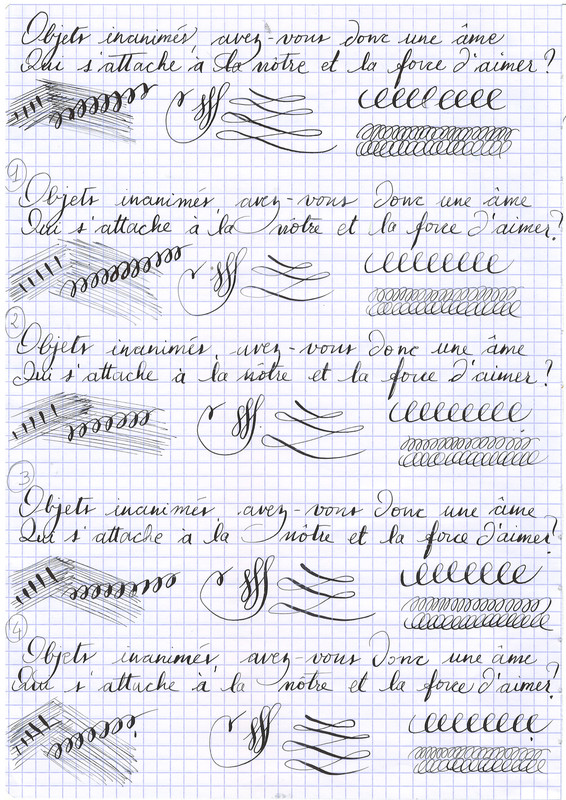 Objets inanimés, avez-vous donc une âme
Qui s'attache à la nôtre et la force d'aimer?
1
Objets inanimés, avez-vous donc une âme
Qui s'attache à la nôtre et la force d'aimer?
2
Objets inanimés, avez-vous donc une âme
Qui s'attache à la nôtre et la force d'aimer?
3
Objets inanimés, avez-vous donc une âme
Qui s'attache à la nôtre et la force d'aimer?
4
Objets inanimés, avez-vous donc une âme
Qui s'attache à la nôtre et la force d'aimer?